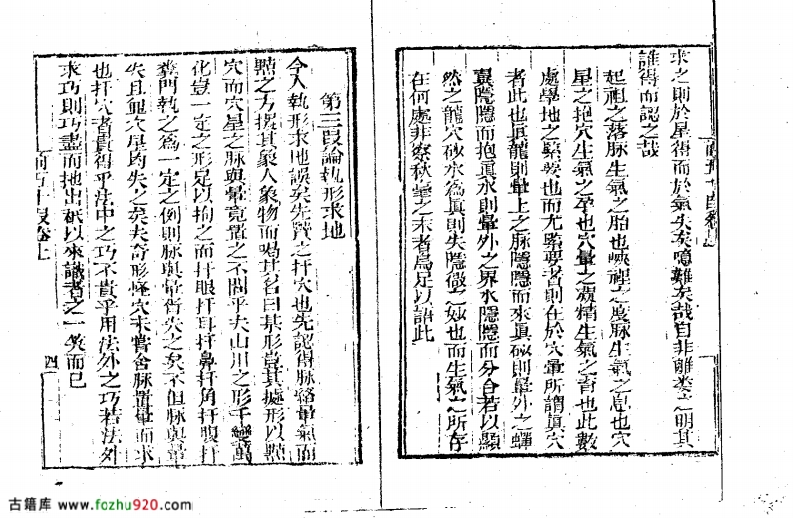 求之則於星得而於氣失矣噫難矣哉自非離婁之明其
誰得而認之哉
起祖之落脉生氣之胎也峽裡之度脉生氣之息也穴
星之抱穴生氣之孕也穴暈之凝精生氣之育也此數
處學地之緊要也而尤緊要者則在於穴暈所謂真穴
者此也真龍則暈上之脉隱隱而來真砂則暈外之蟬
翼隱隱而抱真水則暈外之界水隱隱而分合若以顯
然之龍穴砂水為真則失隱微之妙也而生氣之所存
在何處非察秋毫之末者烏足以語此
第三段論執形求地
今人執形求地誤矣先賢之扦穴也先認得脉暈氣而
點之方擬其象人象物而喝其名曰某形當其擬形以點
穴而穴星之脉與暈竟置之不問乎夫山川之形千變萬
化豈一定之形足以拘之而扦眼扦耳扦鼻扦角扦腹扦
糞門執之為一定之例則脉與暈胥失之矣不但脉與暈
失且龍穴星均失之矣夫奇形怪穴未嘗舍脉置暈而求
也扦穴者貴得乎法中之巧不貴乎用法外之巧若法外
求巧則巧盡而拙出祗以來識者之一笑而已
卷上
四
古籍库 www.fozhu920.com